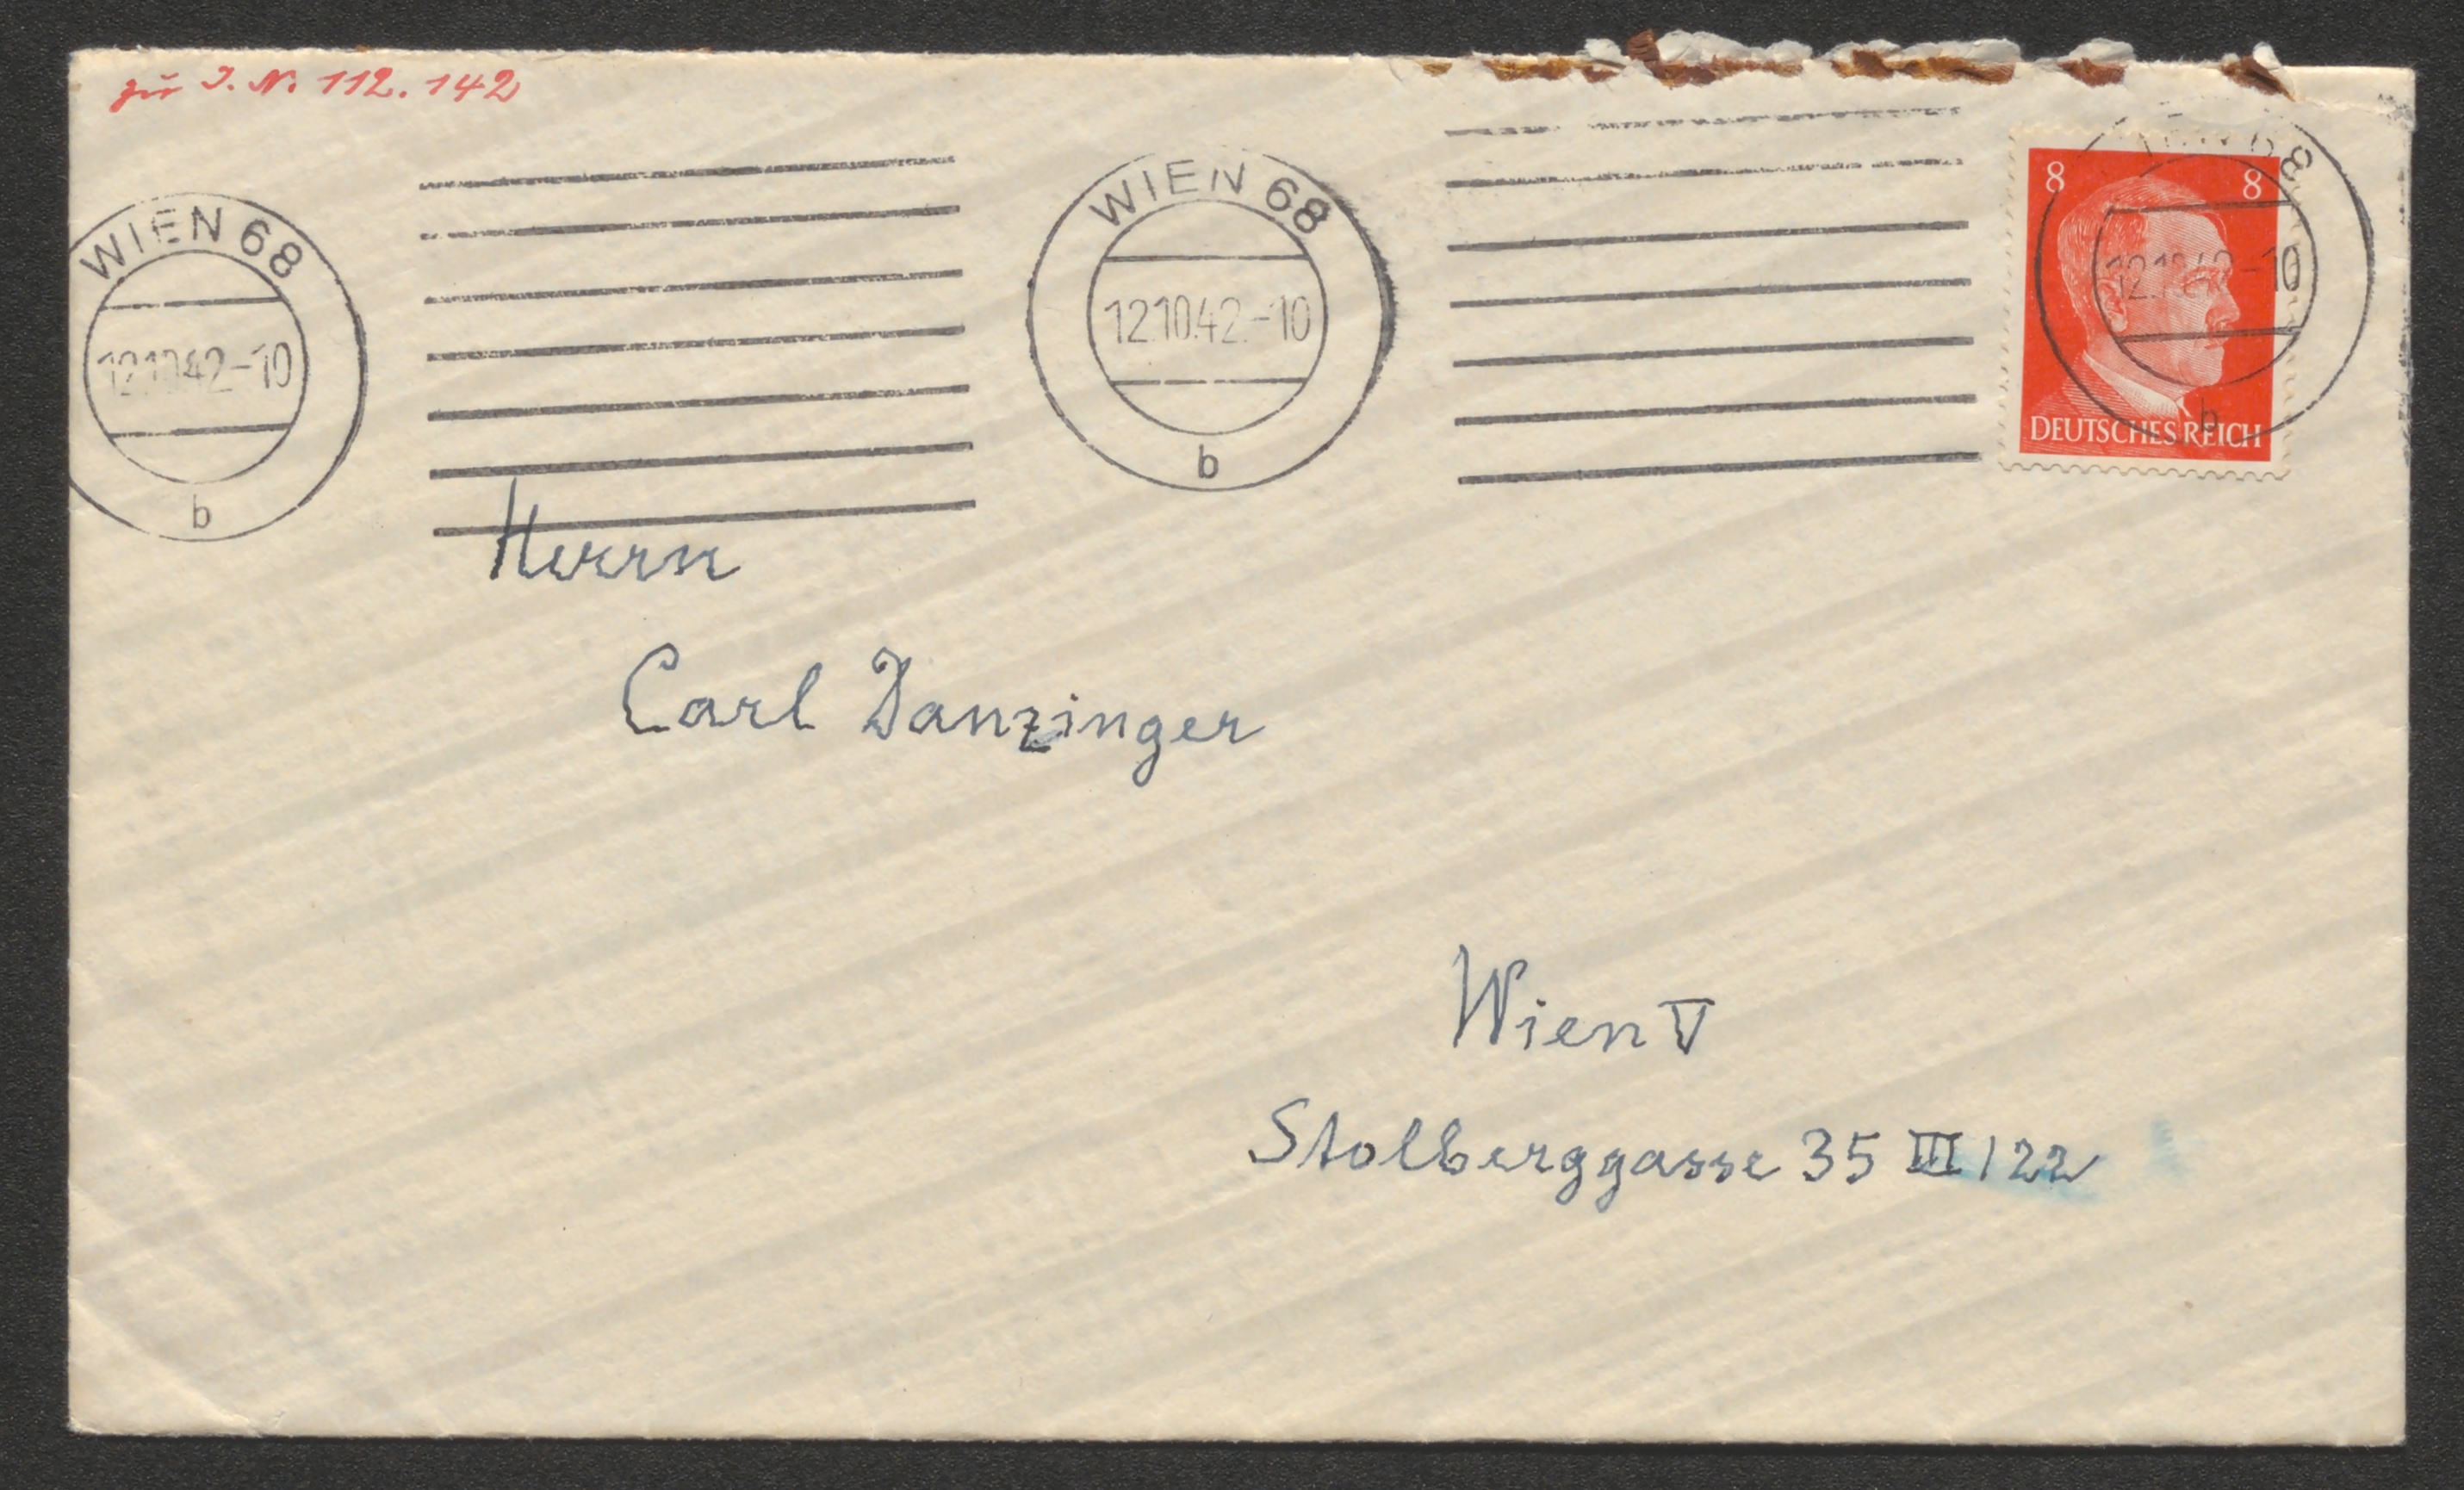 zu I. N. 112.142
WIEN 68
12.10.42.-10
b
WIEN 68
12.10.42.-10
b
8 8
DEUTSCHES REICH
WIEN 68
12.10.42.-10
b
Herrn
Carl Danzinger
Wien V
Stolberggasse 35 III/22